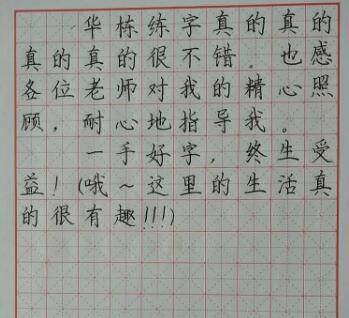 华栋练字真的真的
真的真的很不错。也感
各位老师对我的精心照
顾，耐心地指导我。
一手好字，终生受
益！(哦～这里的生活真
的很有趣!!!)